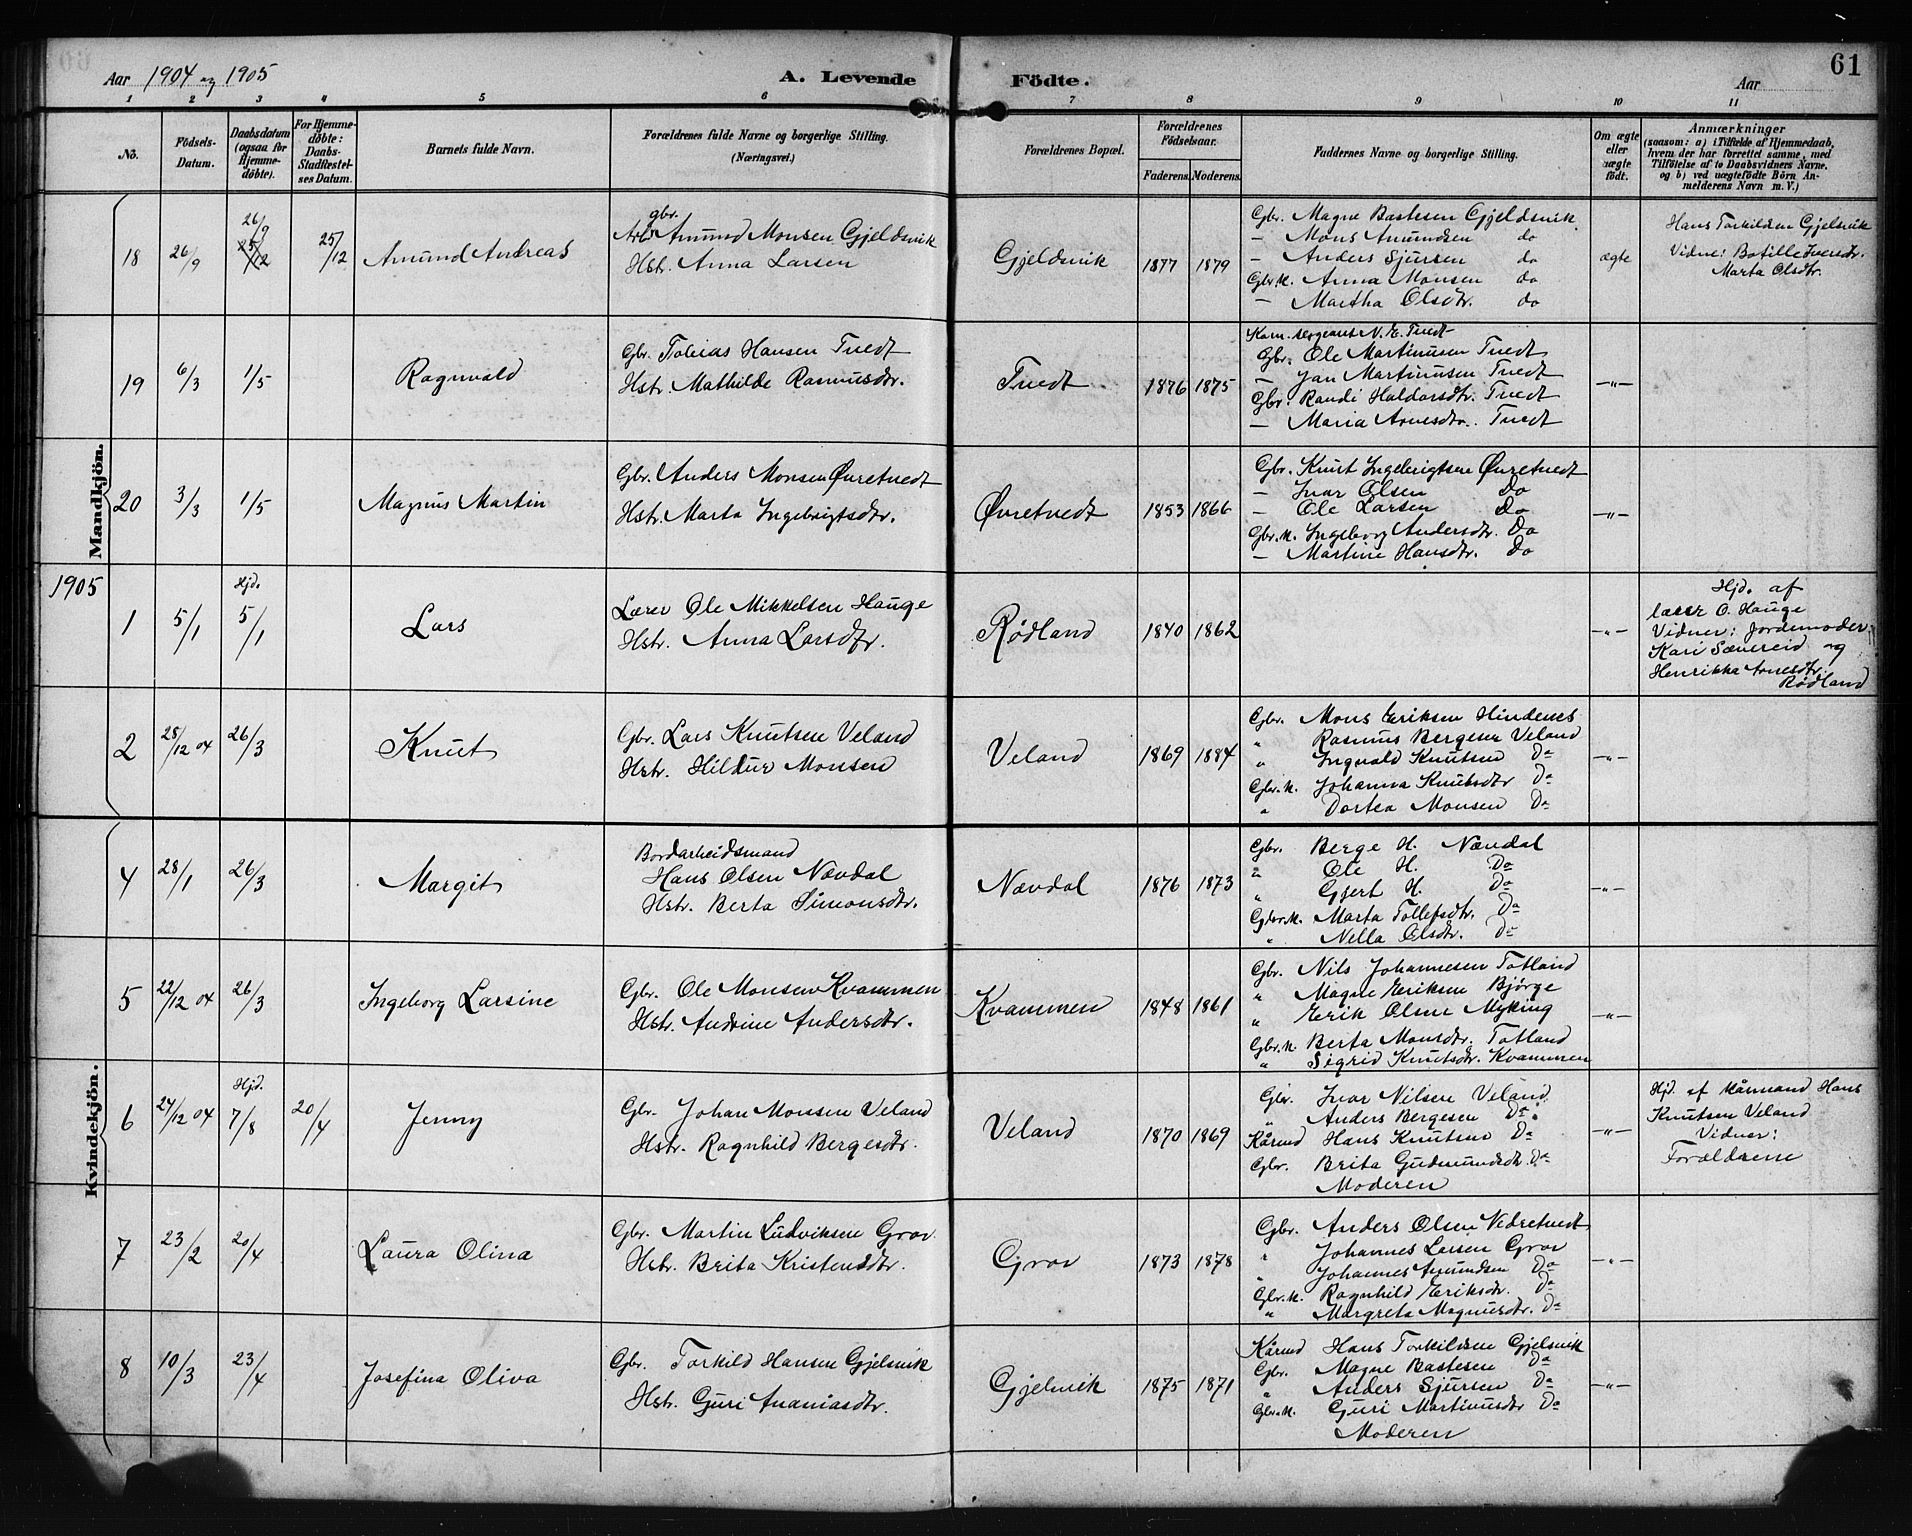 61
Aar 1904 og 1905 A. Levende Födte. Aar
1 2 3 4 5 6 7 8 9 10 11
No.
Födsels-
Datum.
Daabsdatum
(ogsaa for
Hjemme-
døbte).
For Hjemme-
døbte:
Daabs-
Stadfestel-
ses Datum.
Barnets fulde Navn.
Forældrenes fulde Navne og borgerlige Stilling.
(Næringsvei.)
Forældrenes Bopæl.
Forældrenes
Födselsaar.
Faderens. Moderens.
Faddernes Navne og borgerlige Stilling.
Om ægte
eller
uægte
födt.
Anmærkninger
(saasom: a) i Tilfælde af Hjemmedaab,
hvem der har forrettet samme, med
Tilföielse af to Daabsvidners Navne,
og b) ved uægtefödte Börn An-
melderens Navn m. V.)
Mandkjön.
18 26/9 26/9 25/12 25/12 Amund Andreas
gbr.
Arb. Amund Monsen Gjeldsvik
Hst. Anna Larsen
Gjeldsvik 1877 1879
Gbr. Magne Bastesen Gjeldsvik
— Mons Amundsen do
— Anders Sjursen do
Gbr.K. Anna Monsen do
— Martha Olsdtr. do
ægte
Hans Torkildsen Gjelsvik
Vidne: Botille Iversdtr.
Marta Olsdtr.
19 6/3 1/5 Ragnvald
Gbr. Tobias Hansen Tvedt
Hstr. Mathilde Rasmusdtr.
Tvedt 1876 1875
Korn. sergeant N. E. Tvedt
Gbr. Ole Martinusen Tvedt
— Jan Martinusen Tvedt
Gbr. Randi Haldorsdtr. Tvedt
— Maria Arnesdtr. Tvedt
—"—
20 3/3 1/5 Magnus Martin
Gbr. Anders Monsen Øvretvedt
Hstr. Marta Ingebrigtsdtr.
Øvretvedt 1853 1866
Gbr. Knut Ingebrigtsen Øvretvedt
— Ivar Olsen Do
— Ole Larsen Do
Gbr.K. Ingeborg Andersdtr. Do
— Martine Hansdtr. Do
—"—
1905
1 5/1 Hjd. 5/1 Lars
Lærer Ole Mikkelsen Hauge
Hstr. Anna Larsdtr.
Rødland 1840 1862
—"—
Hjd. af
lærer O. Hauge
Vidner: Jordemoder
Kari Sævereid og
Henrikka Arnesdtr.
Rødland
2 28/12 04 26/3 Knut
Gbr. Lars Knutsen Veland
Hstr. Hildur Monsen
Veland 1869 1884
Gbr. Mons Eriksen Hindenes
" Rasmus Bergesen Veland
" Ingvald Knutsen Do
Gbr.K. Johanna Knutsdtr Do
" Dortea Monsen Do
—"—
Kvindekjön.
4 28/1 26/3 Margit
Bordarbeidsmand
Hans Olsen Nævdal
Hstr. Berta Simonsdtr.
Nævdal 1876 1873
Gbr. Berge H. Nævdal
" Ole H. Do
" Gjert H. Do
Gbr.K. Marta Tollefsdtr. Do
" Nella Olsdtr. Do
—"—
5 22/12 04 26/3 Ingeborg Larsine
Gbr. Ole Monsen Kvammen
Hstr. Andrine Andersdtr.
Kvammen 1848 1861
Gbr. Nils Johannesen Totland
" Magne Eriksen Bjørge
" Erik Olsen Myking
Gbr.K. Berta Monsdtr. Totland
" Sigrid Knutsdtr. Kvammen
—"—
6 24/12 04 Hjd. 7/8 20/4 Jenny
Gbr. Johan Monsen Veland
Hstr. Ragnhild Bergesdtr.
Veland 1870 1869
Gbr. Ivar Nilsen Veland
" Anders Bergesen Do
Kårmd Hans Knutsen Do
Gbr. Brita Gudmundsdtr. Do
Moderen
—"—
Hjd. af Kårmand Hans
Knutsen Veland
Vidner:
Forældrene
7 23/2 20/4 Laura Olina
Gbr. Martin Ludviksen Grov
Hstr. Brita Kristensdtr.
Grov 1873 1878
Gbr. Anders Olsen Nedretvedt
" Johannes Larsen Grov
" Johannes Amundsen Do
Gbr.K. Ragnhild Eriksdtr. Do
" Margreta Magnusdtr. Do
—"—
8 10/3 23/4 Josefina Oliva
Gbr. Torkild Hansen Gjelsvik
Hstr. Guri Ananiasdtr.
Gjelsvik 1875 1871
Kårmd Hans Torkildsen Gjelsvik
Gbr. Magne Bastesen Do
" Anders Sjursen Do
Gbr.K. Guri Martinusdtr Do
Moderen
—"—